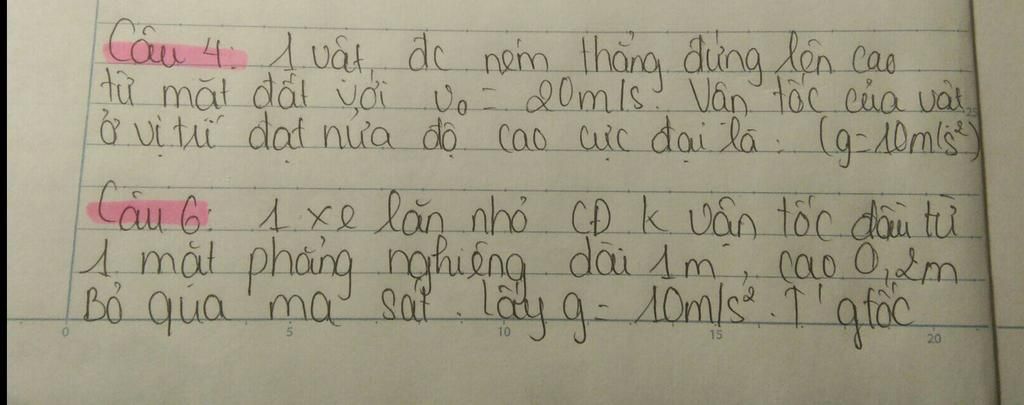 Câu 4: 1 vật đc ném thẳng đứng lên cao
từ mặt đất với v₀ = 20m/s. Vận tốc của vật
ở vị trí đạt nửa độ cao cực đại là: (g=10m/s²)
Câu 6: 1 xe lăn nhỏ CĐ k vận tốc đầu từ
1 mặt phẳng nghiêng dài 1m, cao 0,2m
Bỏ qua ma sát. Lấy g = 10m/s². T' gtốc
0 5 10 15 20